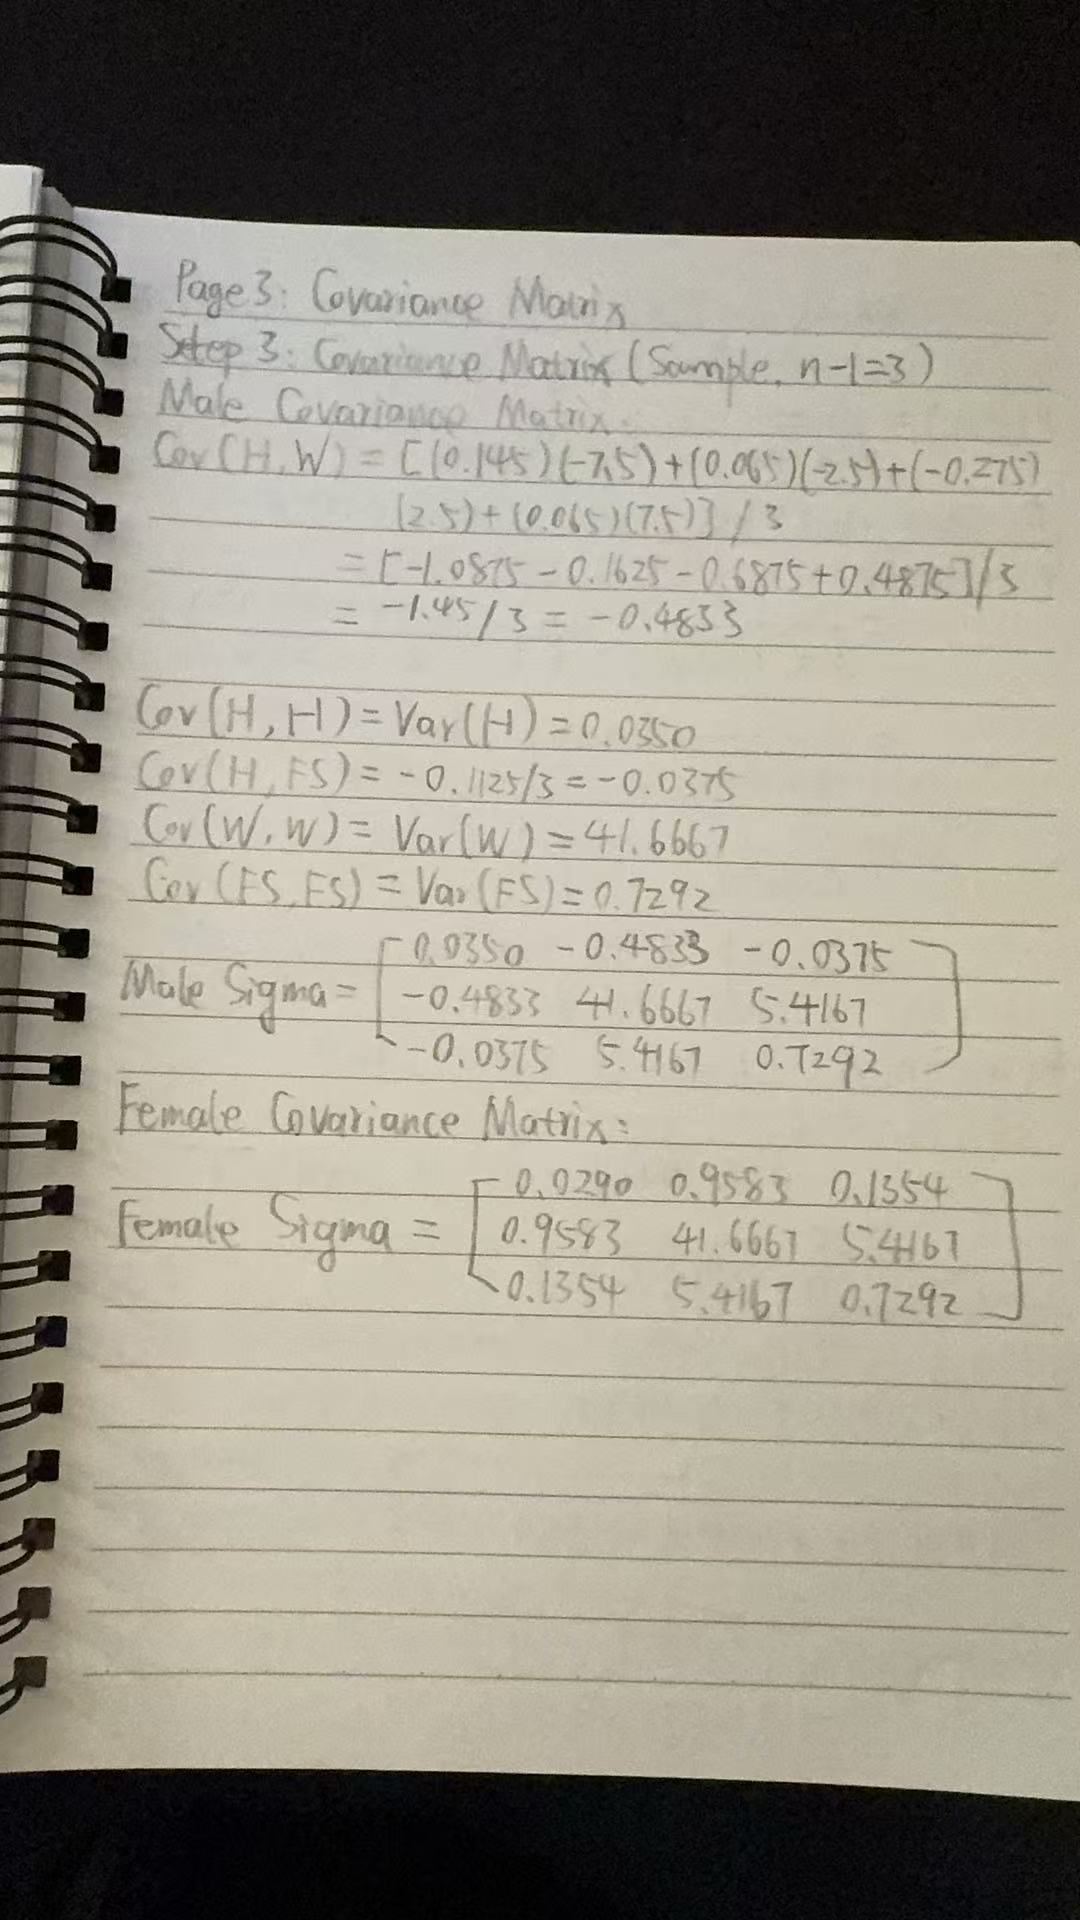 Page 3: Covariance Matrix
Setep 3: Covariance Matrix (Sample, n-1=3)
Male Covariance Matrix:
Cov(H,W) = [(0.145)(-7.5)+(0.065)(-2.5)+(-0.275)
(2.5)+(0.065)(7.5)] / 3
= [-1.0875 - 0.1625 - 0.6875 + 0.4875] / 3
= -1.45 / 3 = -0.4833
Cov(H,H) = Var(H) = 0.0350
Cov(H,FS) = -0.1125/3 = -0.0375
Cov(W,W) = Var(W) = 41.6667
Cov(FS,FS) = Var(FS) = 0.7292
0.0350 -0.4833 -0.0375
Male Sigma = -0.4833 41.6667 5.4167
-0.0375 5.4167 0.7292
Female Covariance Matrix:
0.0290 0.9583 0.1354
Female Sigma = 0.9583 41.6667 5.4167
0.1354 5.4167 0.7292